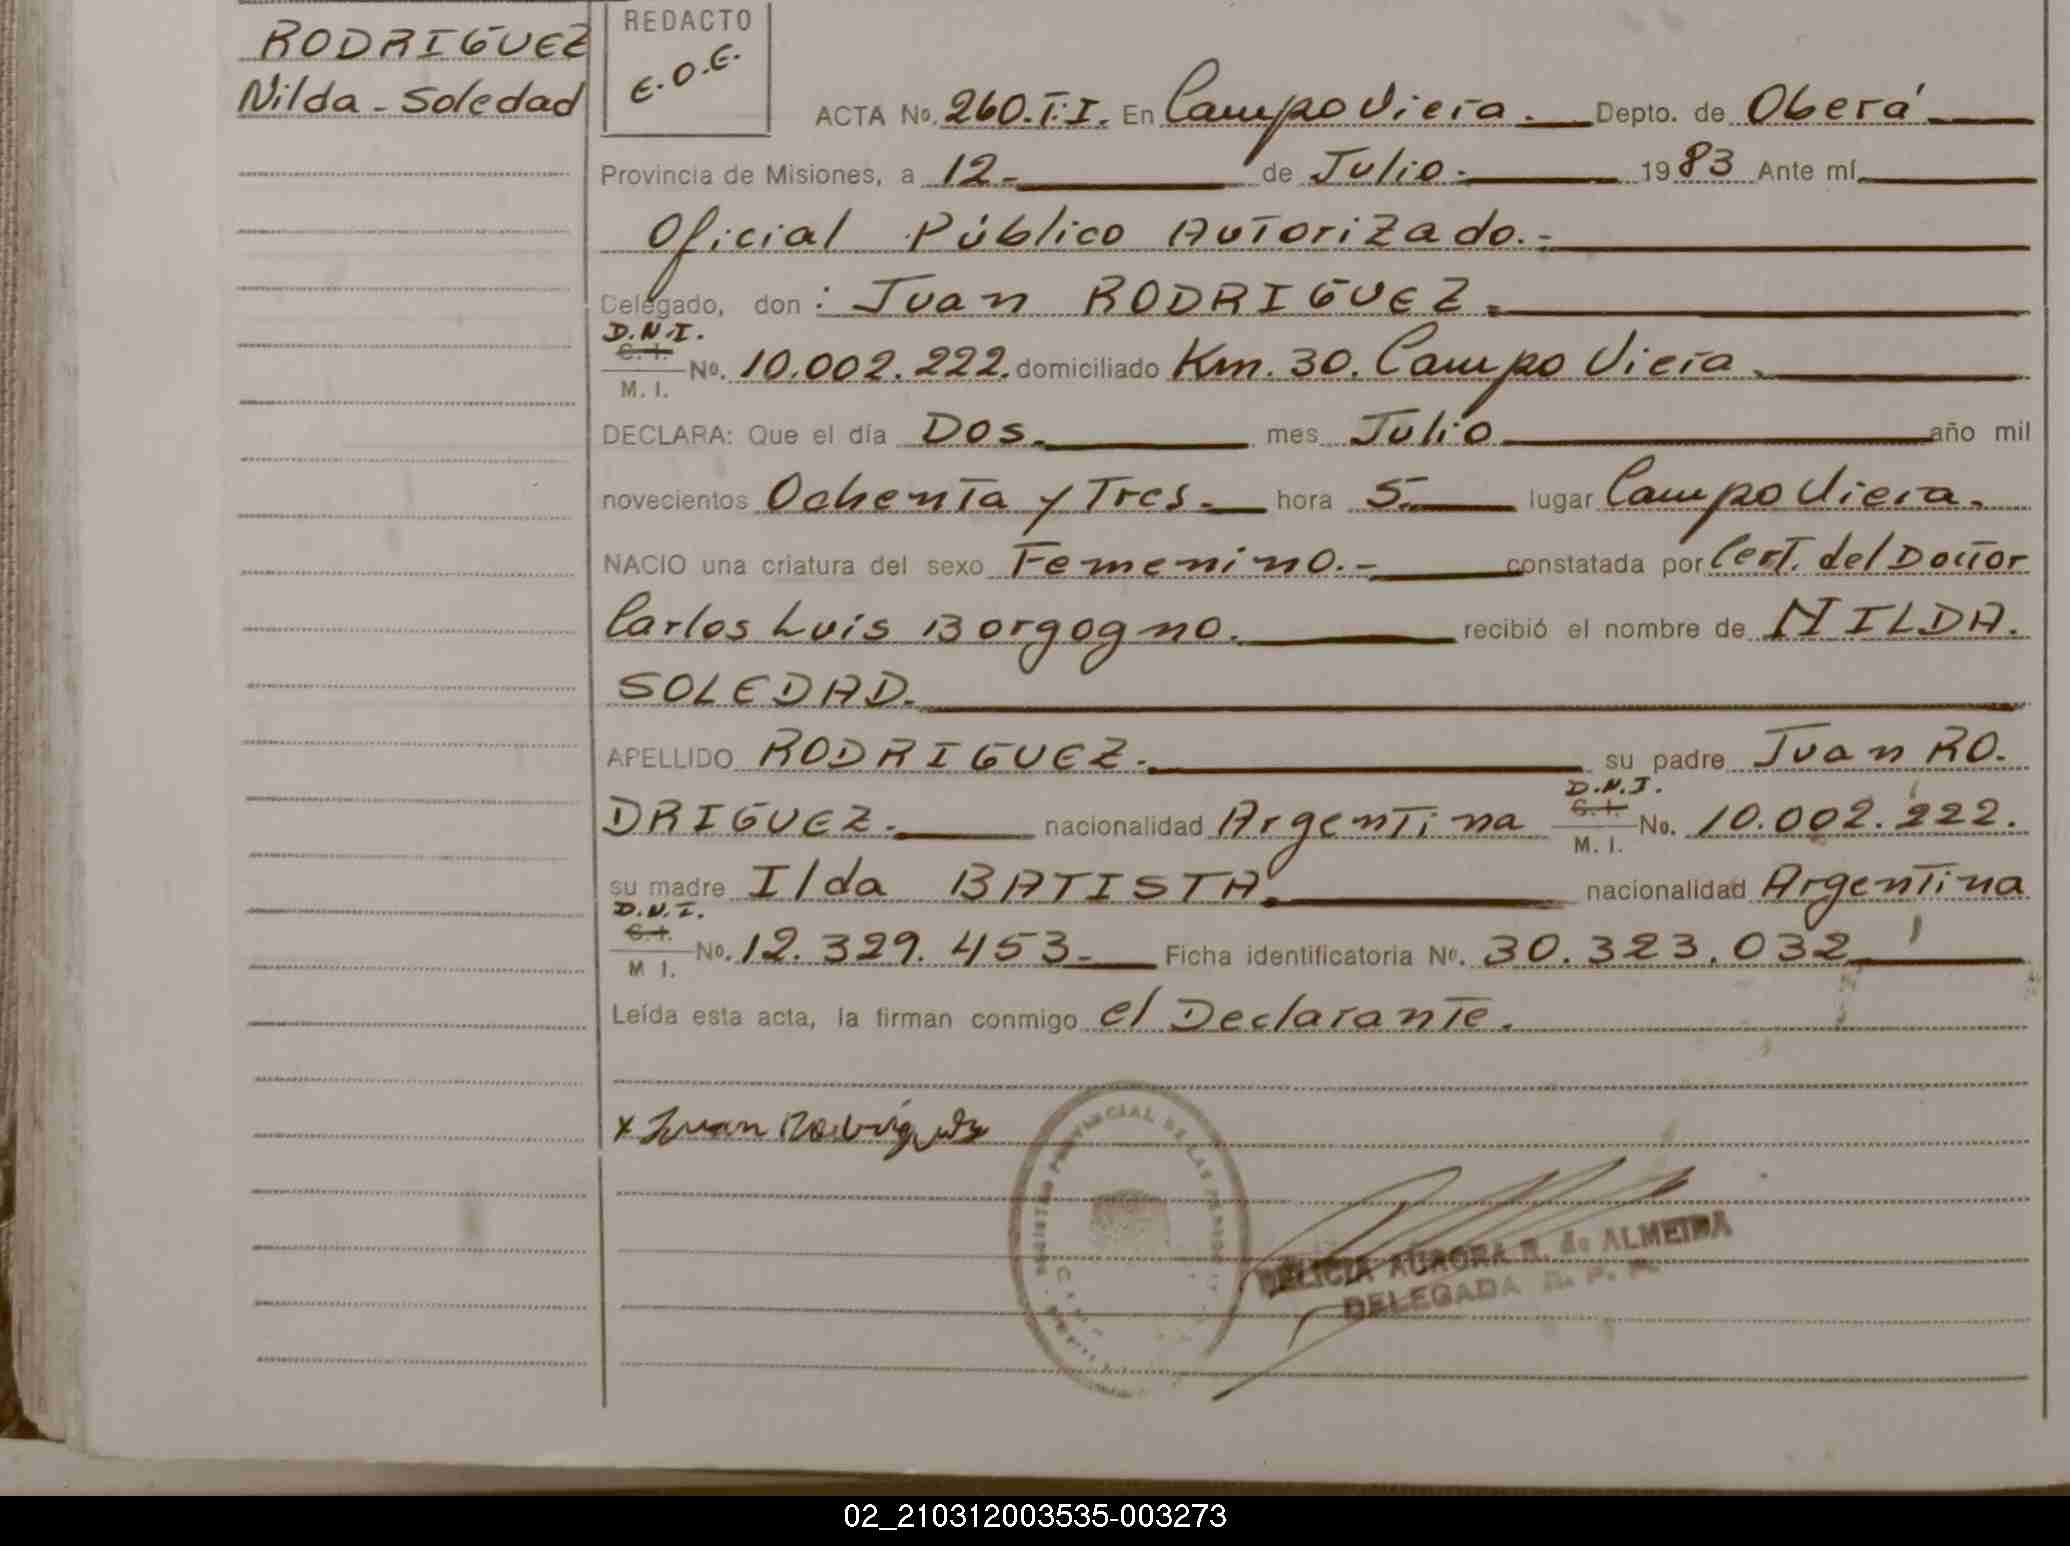 RODRIGUEZ
Nilda - Soledad
REDACTO
E.O.E.
ACTA No. 260.T.I. En Campo Viera. Depto. de Oberá
Provincia de Misiones, a 12.- de Julio.- 1983 Ante mí
Oficial Público Autorizado.-
Delegado, don : Juan RODRIGUEZ.
D.N.I.
C. I.
M. I. No. 10.002.222. domiciliado Km. 30. Campo Viera.
DECLARA: Que el día Dos. mes Julio año mil
novecientos Ochenta y Tres.- hora 5. lugar Campo Viera.
NACIO una criatura del sexo Femenino.- constatada por Cert. del Doctor
Carlos Luis Borgogno. recibió el nombre de NILDA.
SOLEDAD.
APELLIDO RODRIGUEZ. su padre Juan RO.
D.N.I.
DRIGUEZ. nacionalidad Argentina C. I. M. I. No. 10.002.222.
su madre Ilda BATISTA. nacionalidad Argentina
D.N.I.
C. I.
M I. No. 12.329.453.- Ficha identificatoria No. 30.323.032
Leída esta acta, la firman conmigo el Declarante.
x Juan Rodriguez
PROVINCIAL DE LAS PERSONAS
DELICIA AURORA R. de ALMEIDA
DELEGADA R. P. P.
02_210312003535-003273